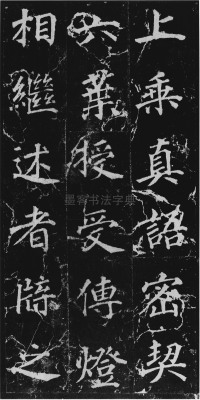 上乘真語密契
六葉授受傳燈
相繼述者牒之
墨客书法字典